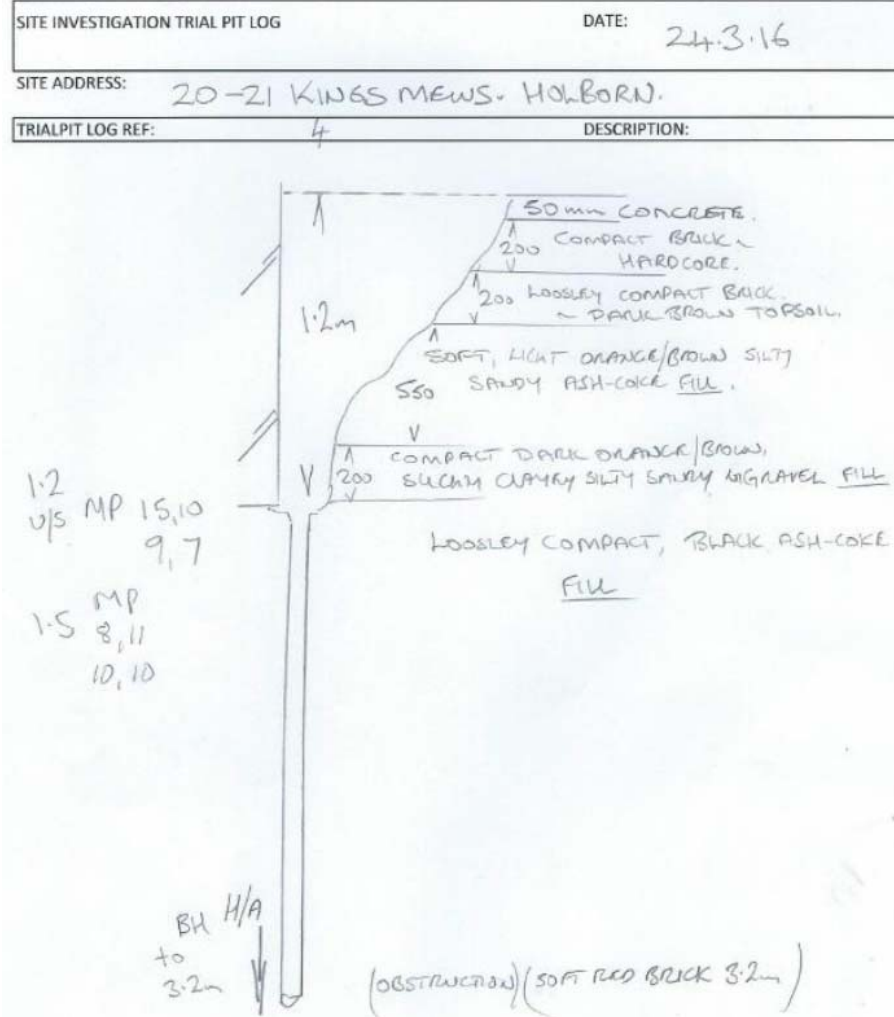 SITE INVESTIGATION TRIAL PIT LOG
DATE: 24.3.16
SITE ADDRESS: 20-21 KINGS MEWS. HOLBORN.
TRIALPIT LOG REF: 4
DESCRIPTION:
50mm CONCRETE.
200 COMPACT BRICK ~
HARDCORE.
1.2m
200 LOOSLEY COMPACT BRICK.
~ DARK BROWN TOPSOIL.
SOFT, LIGHT ORANGE/BROWN SILTY
550 SANDY ASH-COKE FILL.
COMPACT DARK ORANGE/BROWN,
200 CLAYEY SILTY SANDY GRAVEL FILL
1.2
U/S MP 15,10
9,7
LOOSLEY COMPACT, BLACK ASH-COKE
FILL
MP
1.5 8,11
10,10
BH H/A
to
3.2m
(OBSTRUCTION) (SOFT RED BRICK 3.2m)